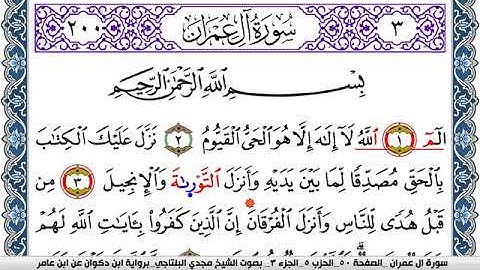 ٣ سُورَةُ آلِ عِمْرَانَ ٢٠٠
بِسْمِ اللَّهِ الرَّحْمَٰنِ الرَّحِيمِ
الٓمٓ ١ ٱللَّهُ لَآ إِلَٰهَ إِلَّا هُوَ ٱلْحَىُّ ٱلْقَيُّومُ ٢ نَزَّلَ عَلَيْكَ ٱلْكِتَٰبَ
بِٱلْحَقِّ مُصَدِّقًا لِّمَا بَيْنَ يَدَيْهِ وَأَنزَلَ ٱلتَّوْرَىٰةَ وَٱلْإِنجِيلَ ٣ مِن
قَبْلُ هُدًى لِّلنَّاسِ وَأَنزَلَ ٱلْفُرْقَانَ إِنَّ ٱلَّذِينَ كَفَرُوا۟ بِـَٔايَٰتِ ٱللَّهِ لَهُمْ
سورة ال عمران _الصفحة ٥٠_الحزب ٥_الجزء ٣_ بصوت الشيخ مجدي البلتاجي_برواية ابن دكوان عن ابن عامر